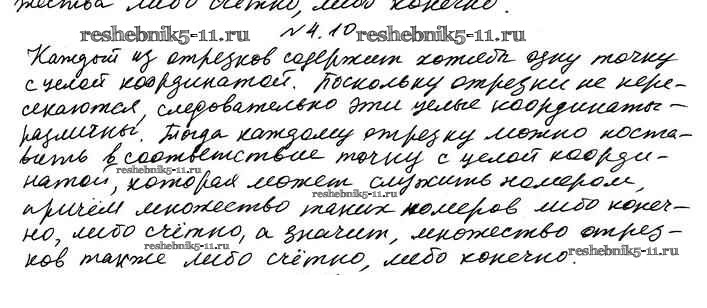 жества либо счётно, либо конечно.
reshebnik5-11.ru №4.10 reshebnik5-11.ru
Каждый из отрезков содержит хотябы одну точку
с целой координатой. Поскольку отрезки не пере-
секаются, следовательно эти целые координаты –
различны. Тогда каждому отрезку можно поста-
вить в соответствие точку с целой коорди-
reshebnik5-11.ru
натой, которая может служить номером,
reshebnik5-11.ru
причём множество таких номеров либо конеч-
но, либо счётно, а значит, множество отрез-
reshebnik5-11.ru
ков также либо счётно, либо конечно.
reshebnik5-11.ru